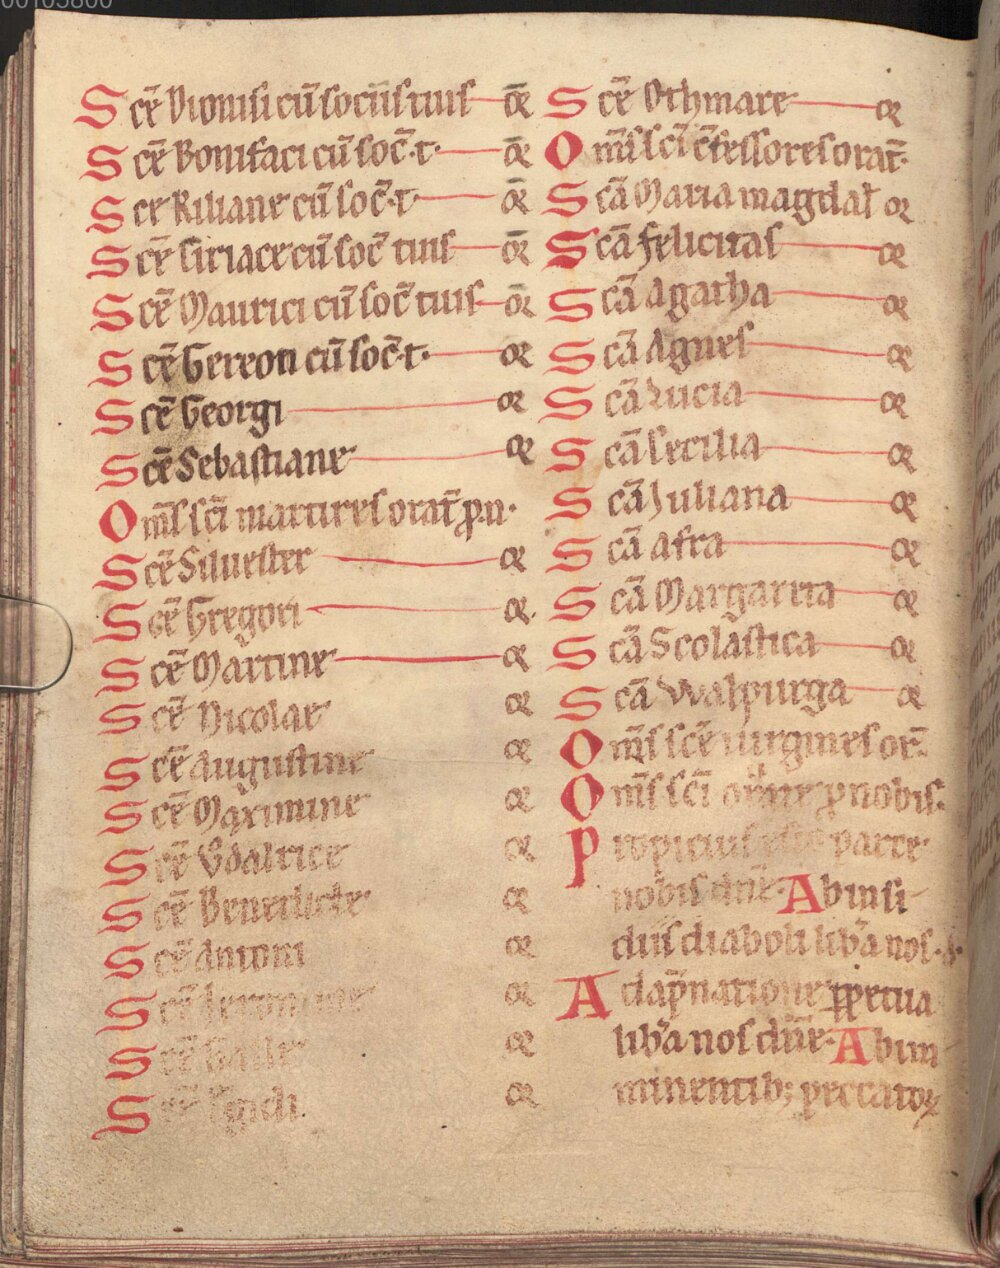 00105800
Sce̅ Dionisi cu̅ sociis tuis o̅r
Sce̅ Bonifaci cu̅ soc̅·t· o̅r
Sce Kiliane cu̅ soc̅·t o̅r
Sce̅ Siriace cu̅ soc̅ tuis o̅r
Sce̅ Maurici cu̅ soc̅ tuis o̅r
Sce̅ Gereon cu̅ soc̅·t· or
Sce̅ Georgi or
Sce̅ Sebastiane or
Om̅s sc̅i martires orat̅ ꝓ·n·
Sce̅ Siluester or
Sce̅ Gregori or
Sce̅ Martine or
Sce̅ Nicolae or
Sce̅ Augustine or
Sce̅ Maximine or
Sce̅ Vodalrice or
Sce̅ Benedicte or
Sce̅ Antoni or
Sce̅ Ieronime or
Sce̅ Galle or
Sce̅ Egidi or
Sce̅ Othmare or
Om̅s sc̅i c̅fessores orat̅·
Sca̅ Maria magdal̅ or
Sca̅ felicitas or
Sca̅ Agatha or
Sca̅ Agnes or
Sca̅ Lucia or
Sca̅ Cecilia or
Sca̅ Iuliana or
Sca̅ Afra or
Sca̅ Margareta or
Sca̅ Scolastica or
Sca̅ Walpurga or
Om̅s sce̅ uirgines or̅·
Om̅s sc̅i orate ꝓ nobis·
Propicius esto parce
nobis dn̅e· Ab insi
diis diaboli lib̅a nos·d·
A da̅pnatione ꝑpetua
lib̅a nos dn̅e· Ab im
minentib; peccatoꝝ